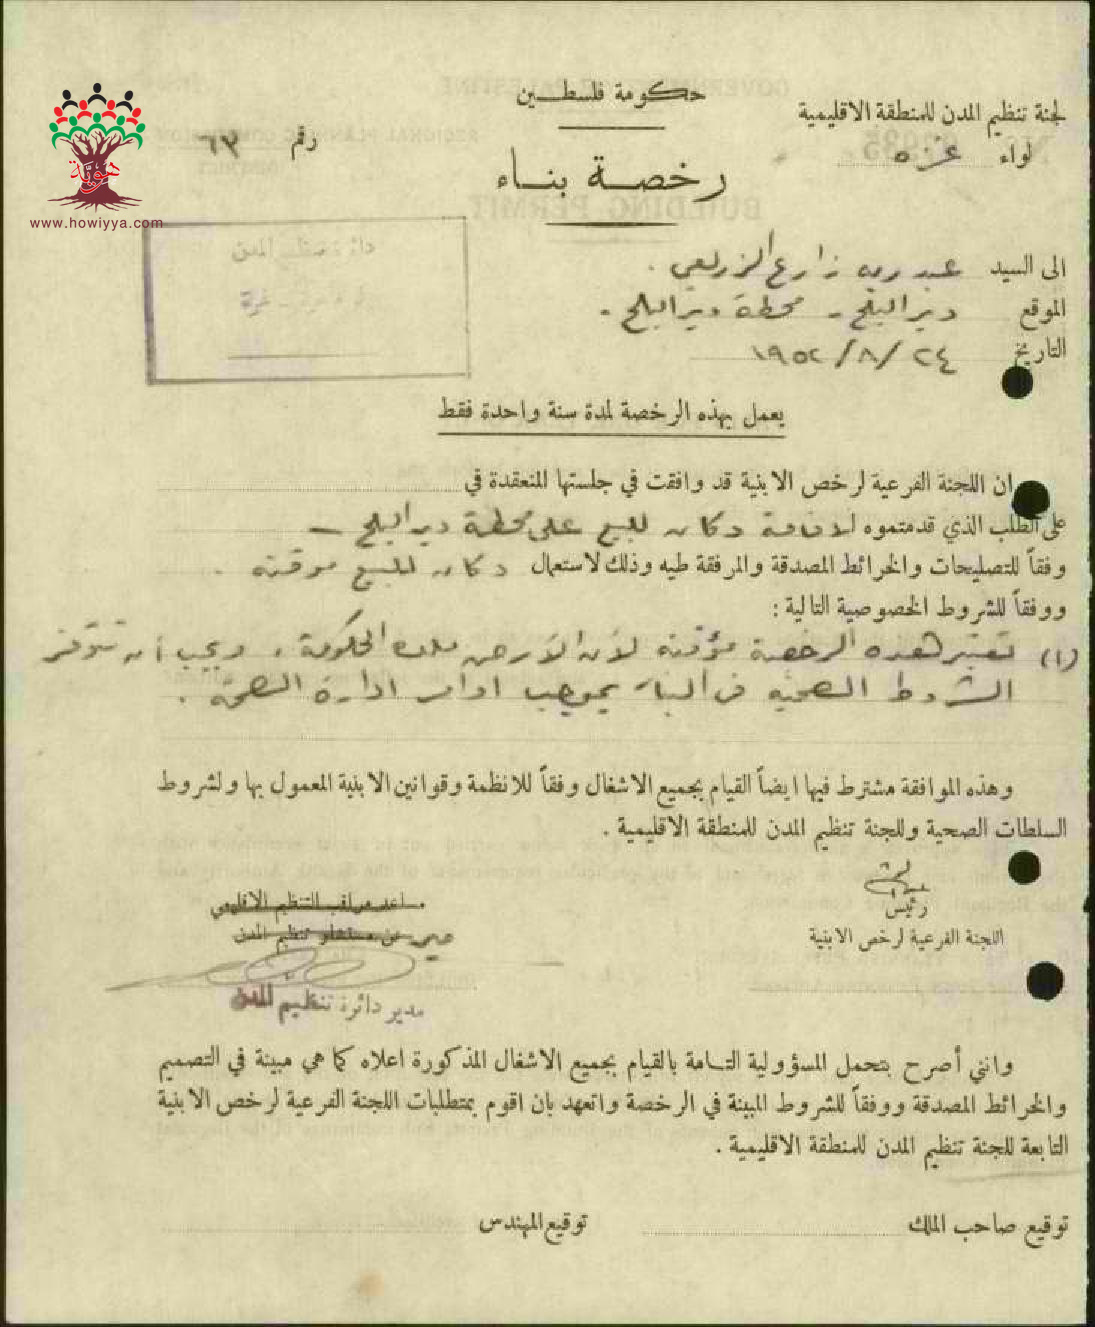 حكومة فلسطين
لجنة تنظيم المدن للمنطقة الاقليمية
لواء غزة
رقم ٦٣
هوية
www.howiyya.com
رخصة بناء
دائرة تنظيم المدن
غزة
الى السيد عبد ربه زارع الزريعي .
الموقع دير البلح - محطة دير البلح .
التاريخ ٢٤ / ٨ / ١٩٥٢
يعمل بهذه الرخصة لمدة سنة واحدة فقط
ان اللجنة الفرعية لرخص الابنية قد وافقت في جلستها المنعقدة في
على الطلب الذي قدمتموه لاقامة دكان للبيع على محطة دير البلح -
وفقاً للتصليحات والخرائط المصدقة والمرفقة طيه وذلك لاستعمال دكان للبيع موقته .
ووفقاً للشروط الخصوصية التالية :
(١) تعتبر هذه الرخصة مؤقته لأن الأرض ملك الحكومة ، ويجب أن تتوفر
الشروط الصحيه في البناء بموجب اوامر ادارة الصحة .
وهذه الموافقة مشترط فيها ايضاً القيام بجميع الاشغال وفقاً للانظمة وقوانين الابنية المعمول بها ولشروط
السلطات الصحية وللجنة تنظيم المدن للمنطقة الاقليمية .
رئيس
اللجنة الفرعية لرخص الابنية
مساعد مراقب التنظيم الاقليمي
عن مستشار تنظيم المدن
مدير دائرة تنظيم المدن
وانني أصرح بتحمل المسؤولية التامة بالقيام بجميع الاشغال المذكورة اعلاه كما هي مبينة في التصميم
والخرائط المصدقة ووفقاً للشروط المبينة في الرخصة واتعهد بان اقوم بمتطلبات اللجنة الفرعية لرخص الابنية
التابعة للجنة تنظيم المدن للمنطقة الاقليمية .
توقيع صاحب الملك
توقيع المهندس